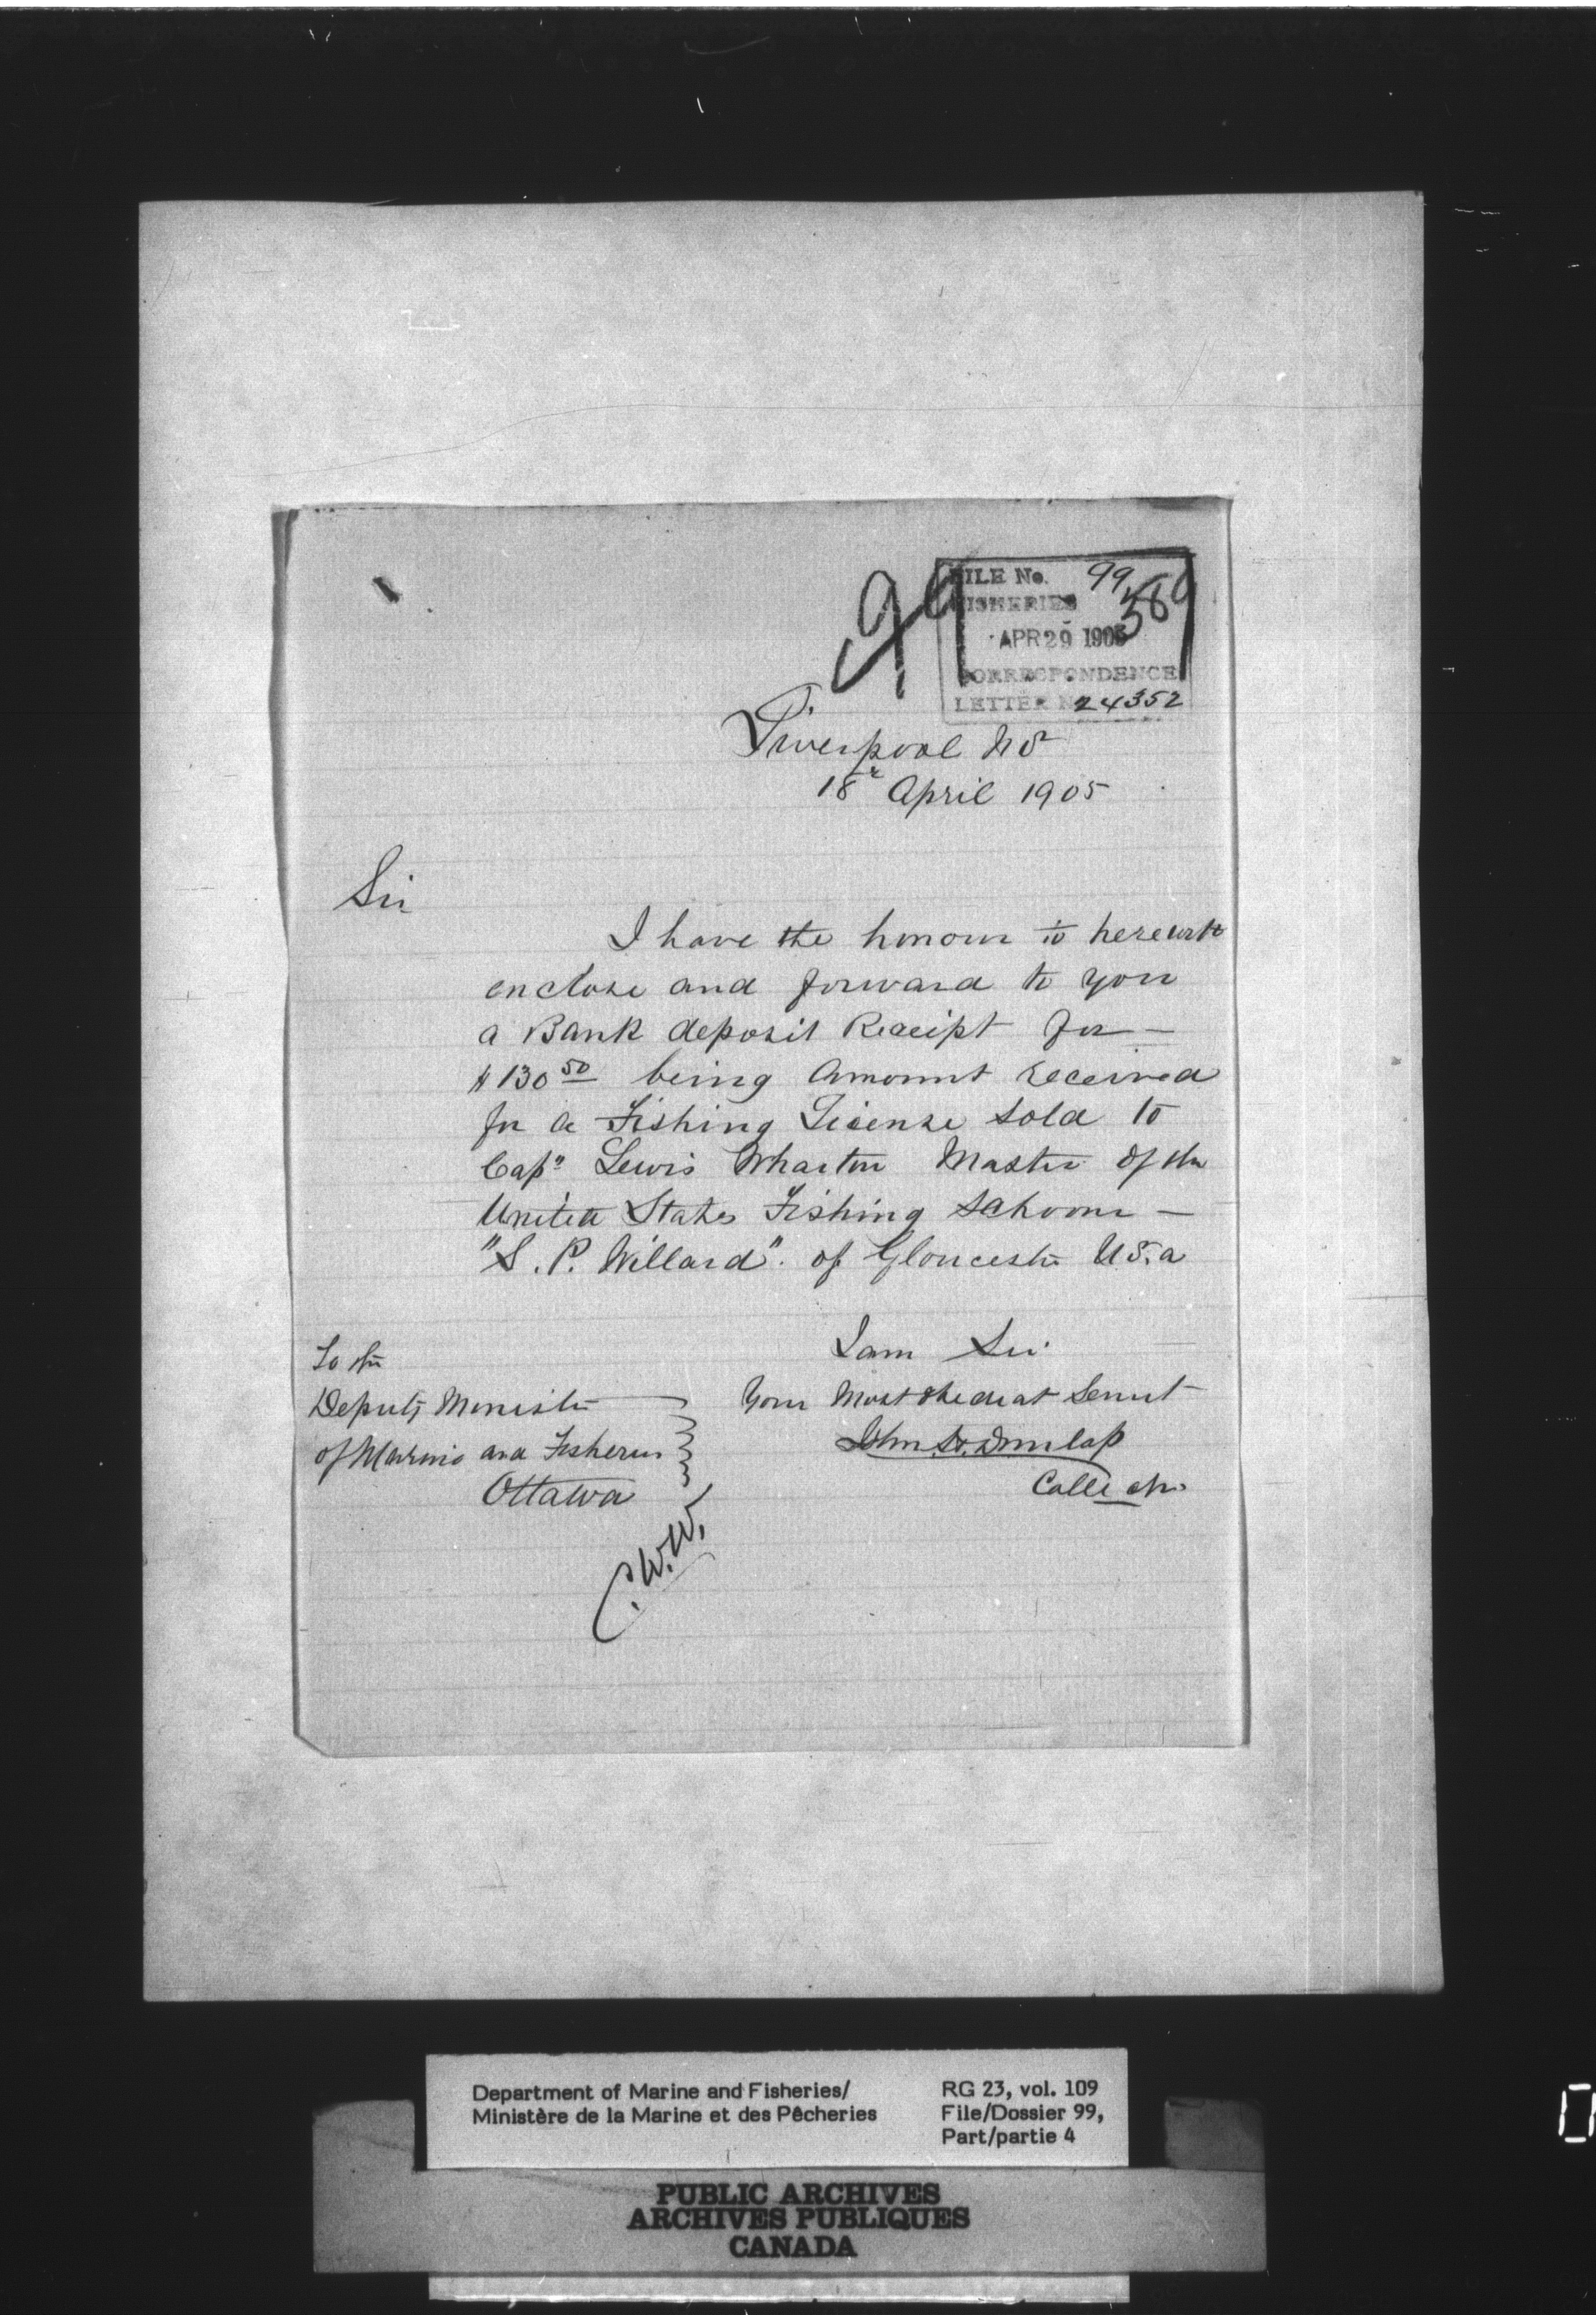 99
FILE No. 99
FISHERIES 580
APR 29 1905
CORRESPONDENCE
LETTER No 24352
Liverpool NS
18th April 1905
Sir
I have the honour to herewith
enclose and forward to you
a Bank deposit Receipt for —
$130 50 being Amount received
for a Fishing License sold to
Capn Lewis Wharton Master of the
United States Fishing Schooner —
"S. P. Willard". of Gloucester U.S.a
I am Sir
Your Most Obedient Servnt
John H. Dunlap
Collector
To the
Deputy Minister
of Marine and Fisheries
Ottawa
C.W.W.
Department of Marine and Fisheries/
Ministère de la Marine et des Pêcheries
RG 23, vol. 109
File/Dossier 99,
Part/partie 4
PUBLIC ARCHIVES
ARCHIVES PUBLIQUES
CANADA